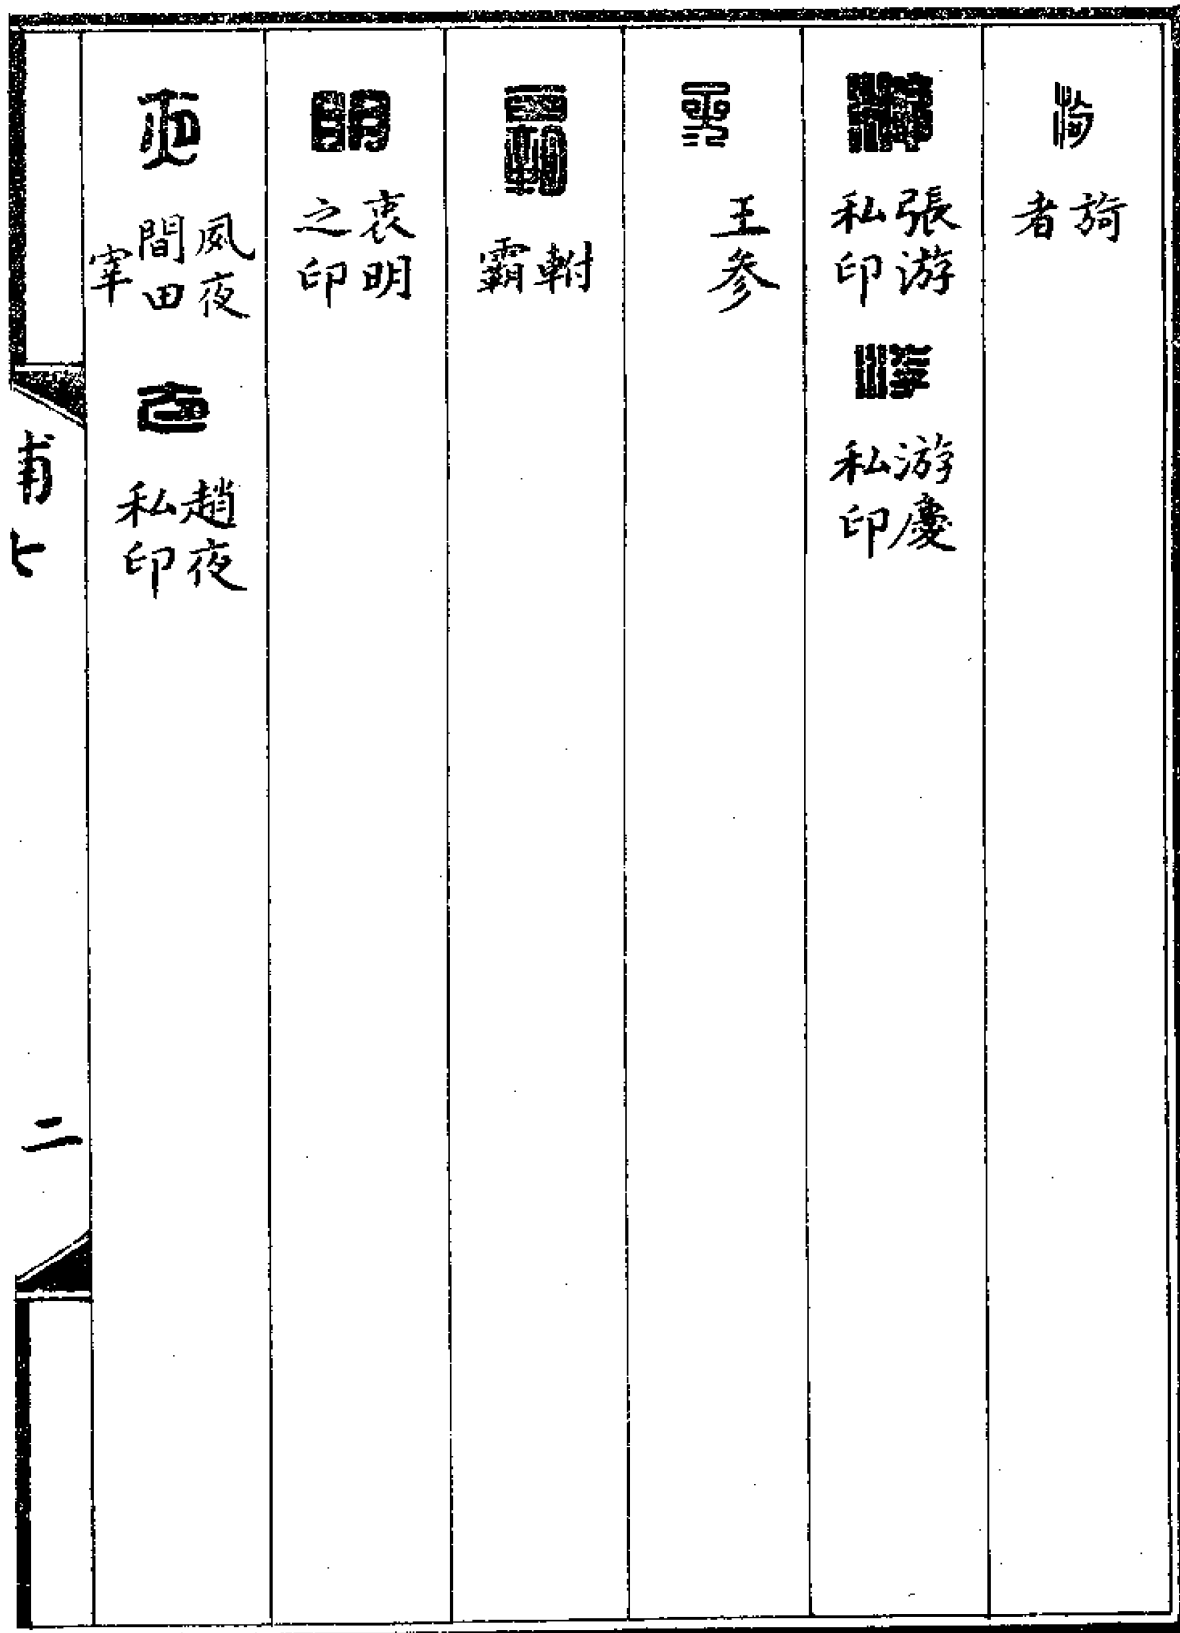 旖
者
張游
私印
游慶
私印
王參
軵
霸
衷明
之印
夙夜
間田
宰
趙夜
私印
補七
二